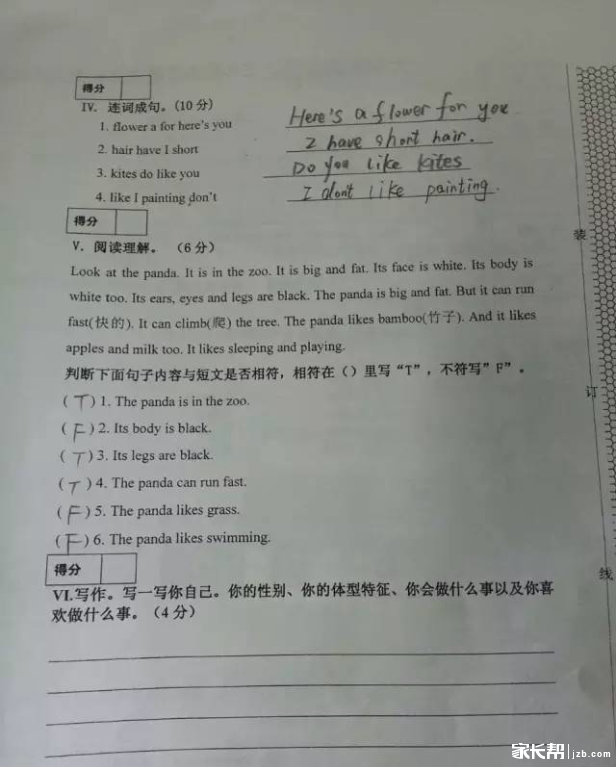 得分
IV. 连词成句。(10 分)
1. flower a for here's you Here's a flower for you
2. hair have I short I have short hair.
3. kites do like you Do you like kites
4. like I painting don't I dont like painting.
得分
V. 阅读理解。 (6 分)
Look at the panda. It is in the zoo. It is big and fat. Its face is white. Its body is
white too. Its ears, eyes and legs are black. The panda is big and fat. But it can run
fast(快的). It can climb(爬) the tree. The panda likes bamboo(竹子). And it likes
apples and milk too. It likes sleeping and playing.
判断下面句子内容与短文是否相符，相符在（）里写“T”，不符写”F”。
( T ) 1. The panda is in the zoo.
( F ) 2. Its body is black.
( T ) 3. Its legs are black.
( T ) 4. The panda can run fast.
( F ) 5. The panda likes grass.
( F ) 6. The panda likes swimming.
得分
VI.写作。写一写你自己。你的性别、你的体型特征、你会做什么事以及你喜
欢做什么事。（4 分）
装
订
线
家长帮|jzb.com